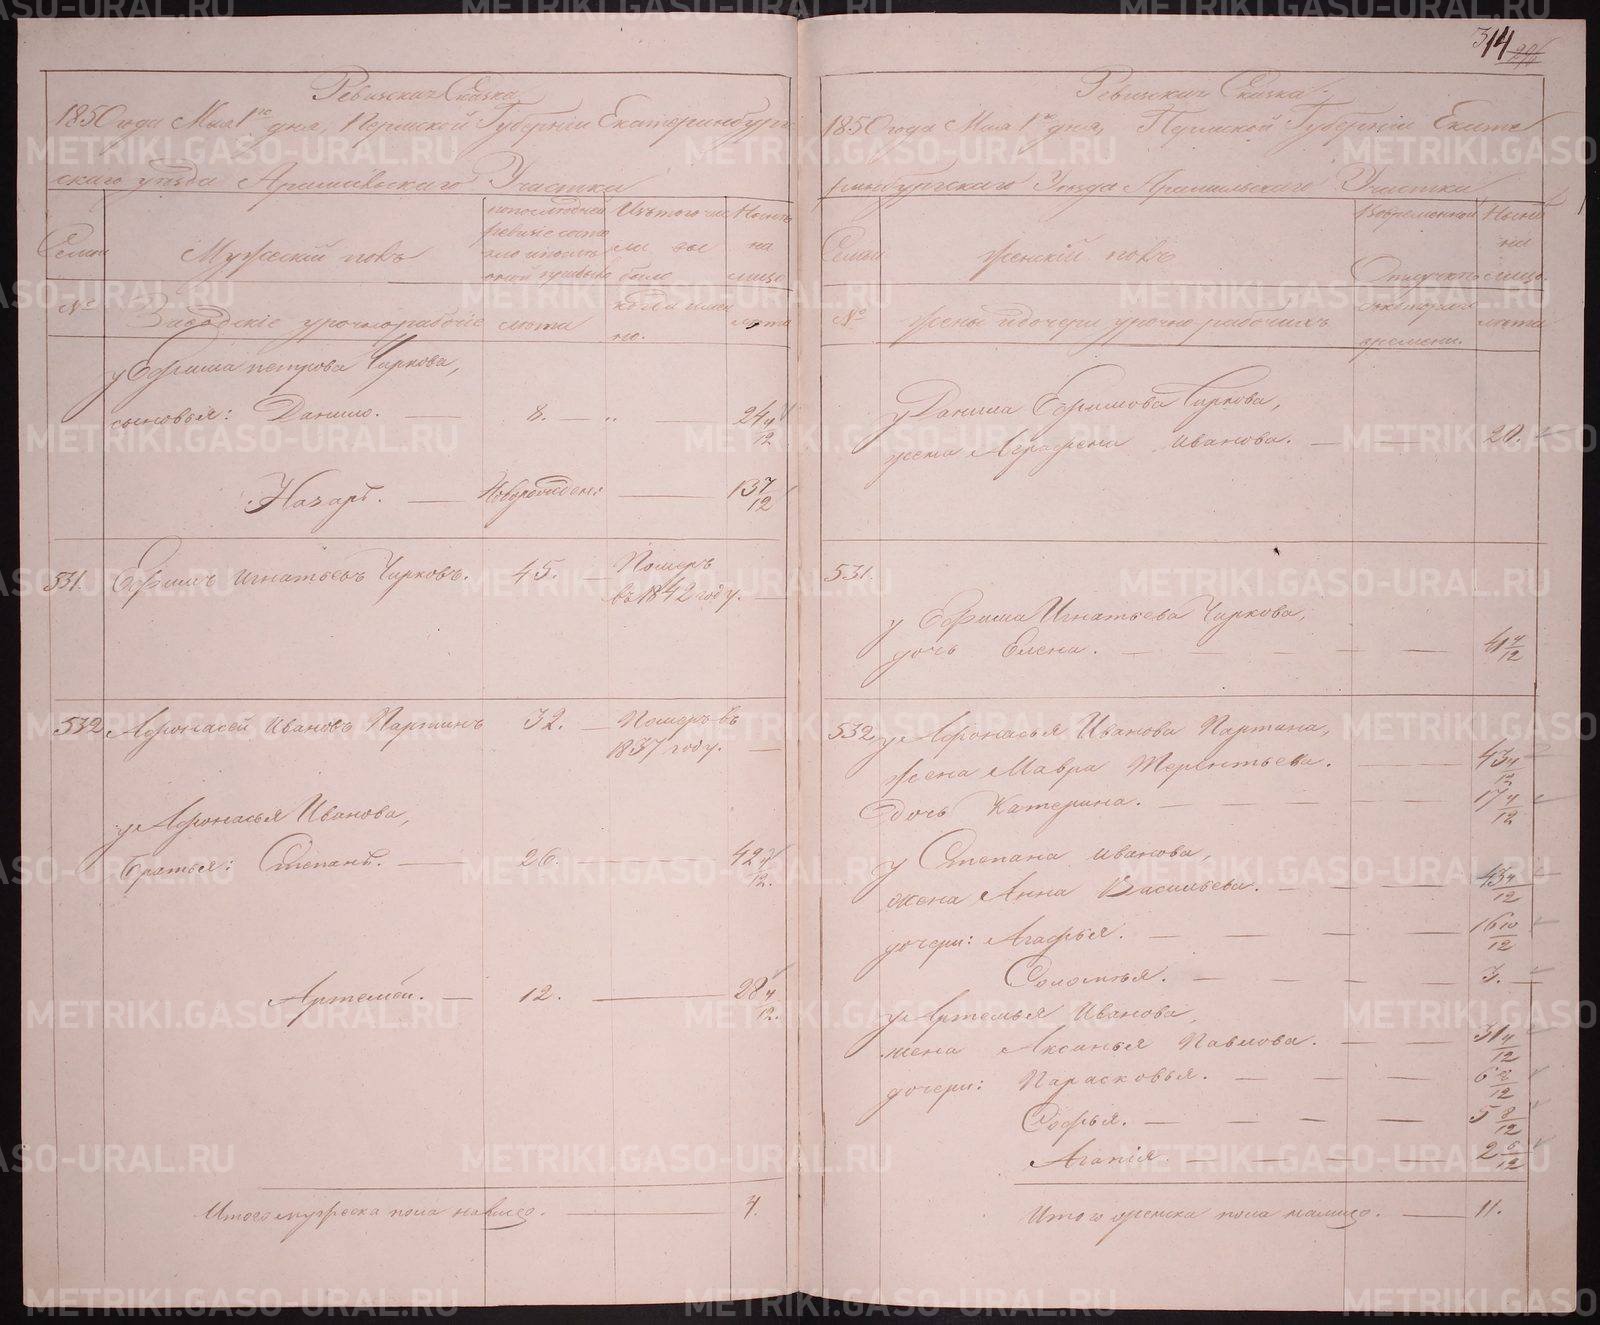 314
Ревизская Сказка
1850 года Мая 1го дня, Пермской Губернiи Екатеринбург
скаго уѣзда Арамильскаго Участка
Семьи
Мужескiй полъ
по последней
ревизiи состо
яло и после
оной прибыло
Изъ того чис
ла вы
было
Нынѣ
на
лицо
№
Заводскiе урочнорабочiе
лѣта
когда имен
но.
лѣта
у Ефима петрова Чиркова,
сыновья: Данило. — 8. — 24 4/12
Назаръ. — Новорожден: — 13 7/12
531. Ефимъ Игнатьевъ Чирковъ. 45. — Померъ
въ 1842 году. —
532 Афонасей Ивановъ Партинъ 32. — Померъ въ
1837 году. —
у Афонасья Иванова,
братья: Степанъ. — 26. — 42 4/12
Артемей. — 12. — 28 4/12
Итого мужеска пола налицо. — 4.
Ревизская Сказка
1850 года Мая 1го дня, Пермской Губернiи Екате
ринбургскаго Уѣзда Арамильскаго Участка
Семьи
Женскiй полъ
Во временной
Отлучкѣ
Нынѣ
на
лицо
№
Жены и дочери урочно рабочихъ
съ котораго
времени.
лѣта
у Данила Ефимова Чиркова,
жена Аграфена Иванова. — — 20.
531.
у Ефима Игнатьева Чиркова,
дочь Елена. — — — — 41 4/12
532 у Афонасья Иванова Партина,
жена Мавра Терентьева. — — 43 4/12
дочь Катерина. — — — — 17 4/12
у Степана Иванова,
жена Анна Васильева. — — — 43 4/12
дочери: Агафья. — — — — 16 10/12
Соломѣя. — — — — 3.
у Артемья Иванова,
жена Аксинья Павлова. — — 31 4/12
дочери: Парасковья. — — — 6 2/12
Софья. — — — — 5 2/12
Агапiя. — — — — 2 6/12
Итого женска пола налицо. — 11.
METRIKI.GASO-URAL.RU